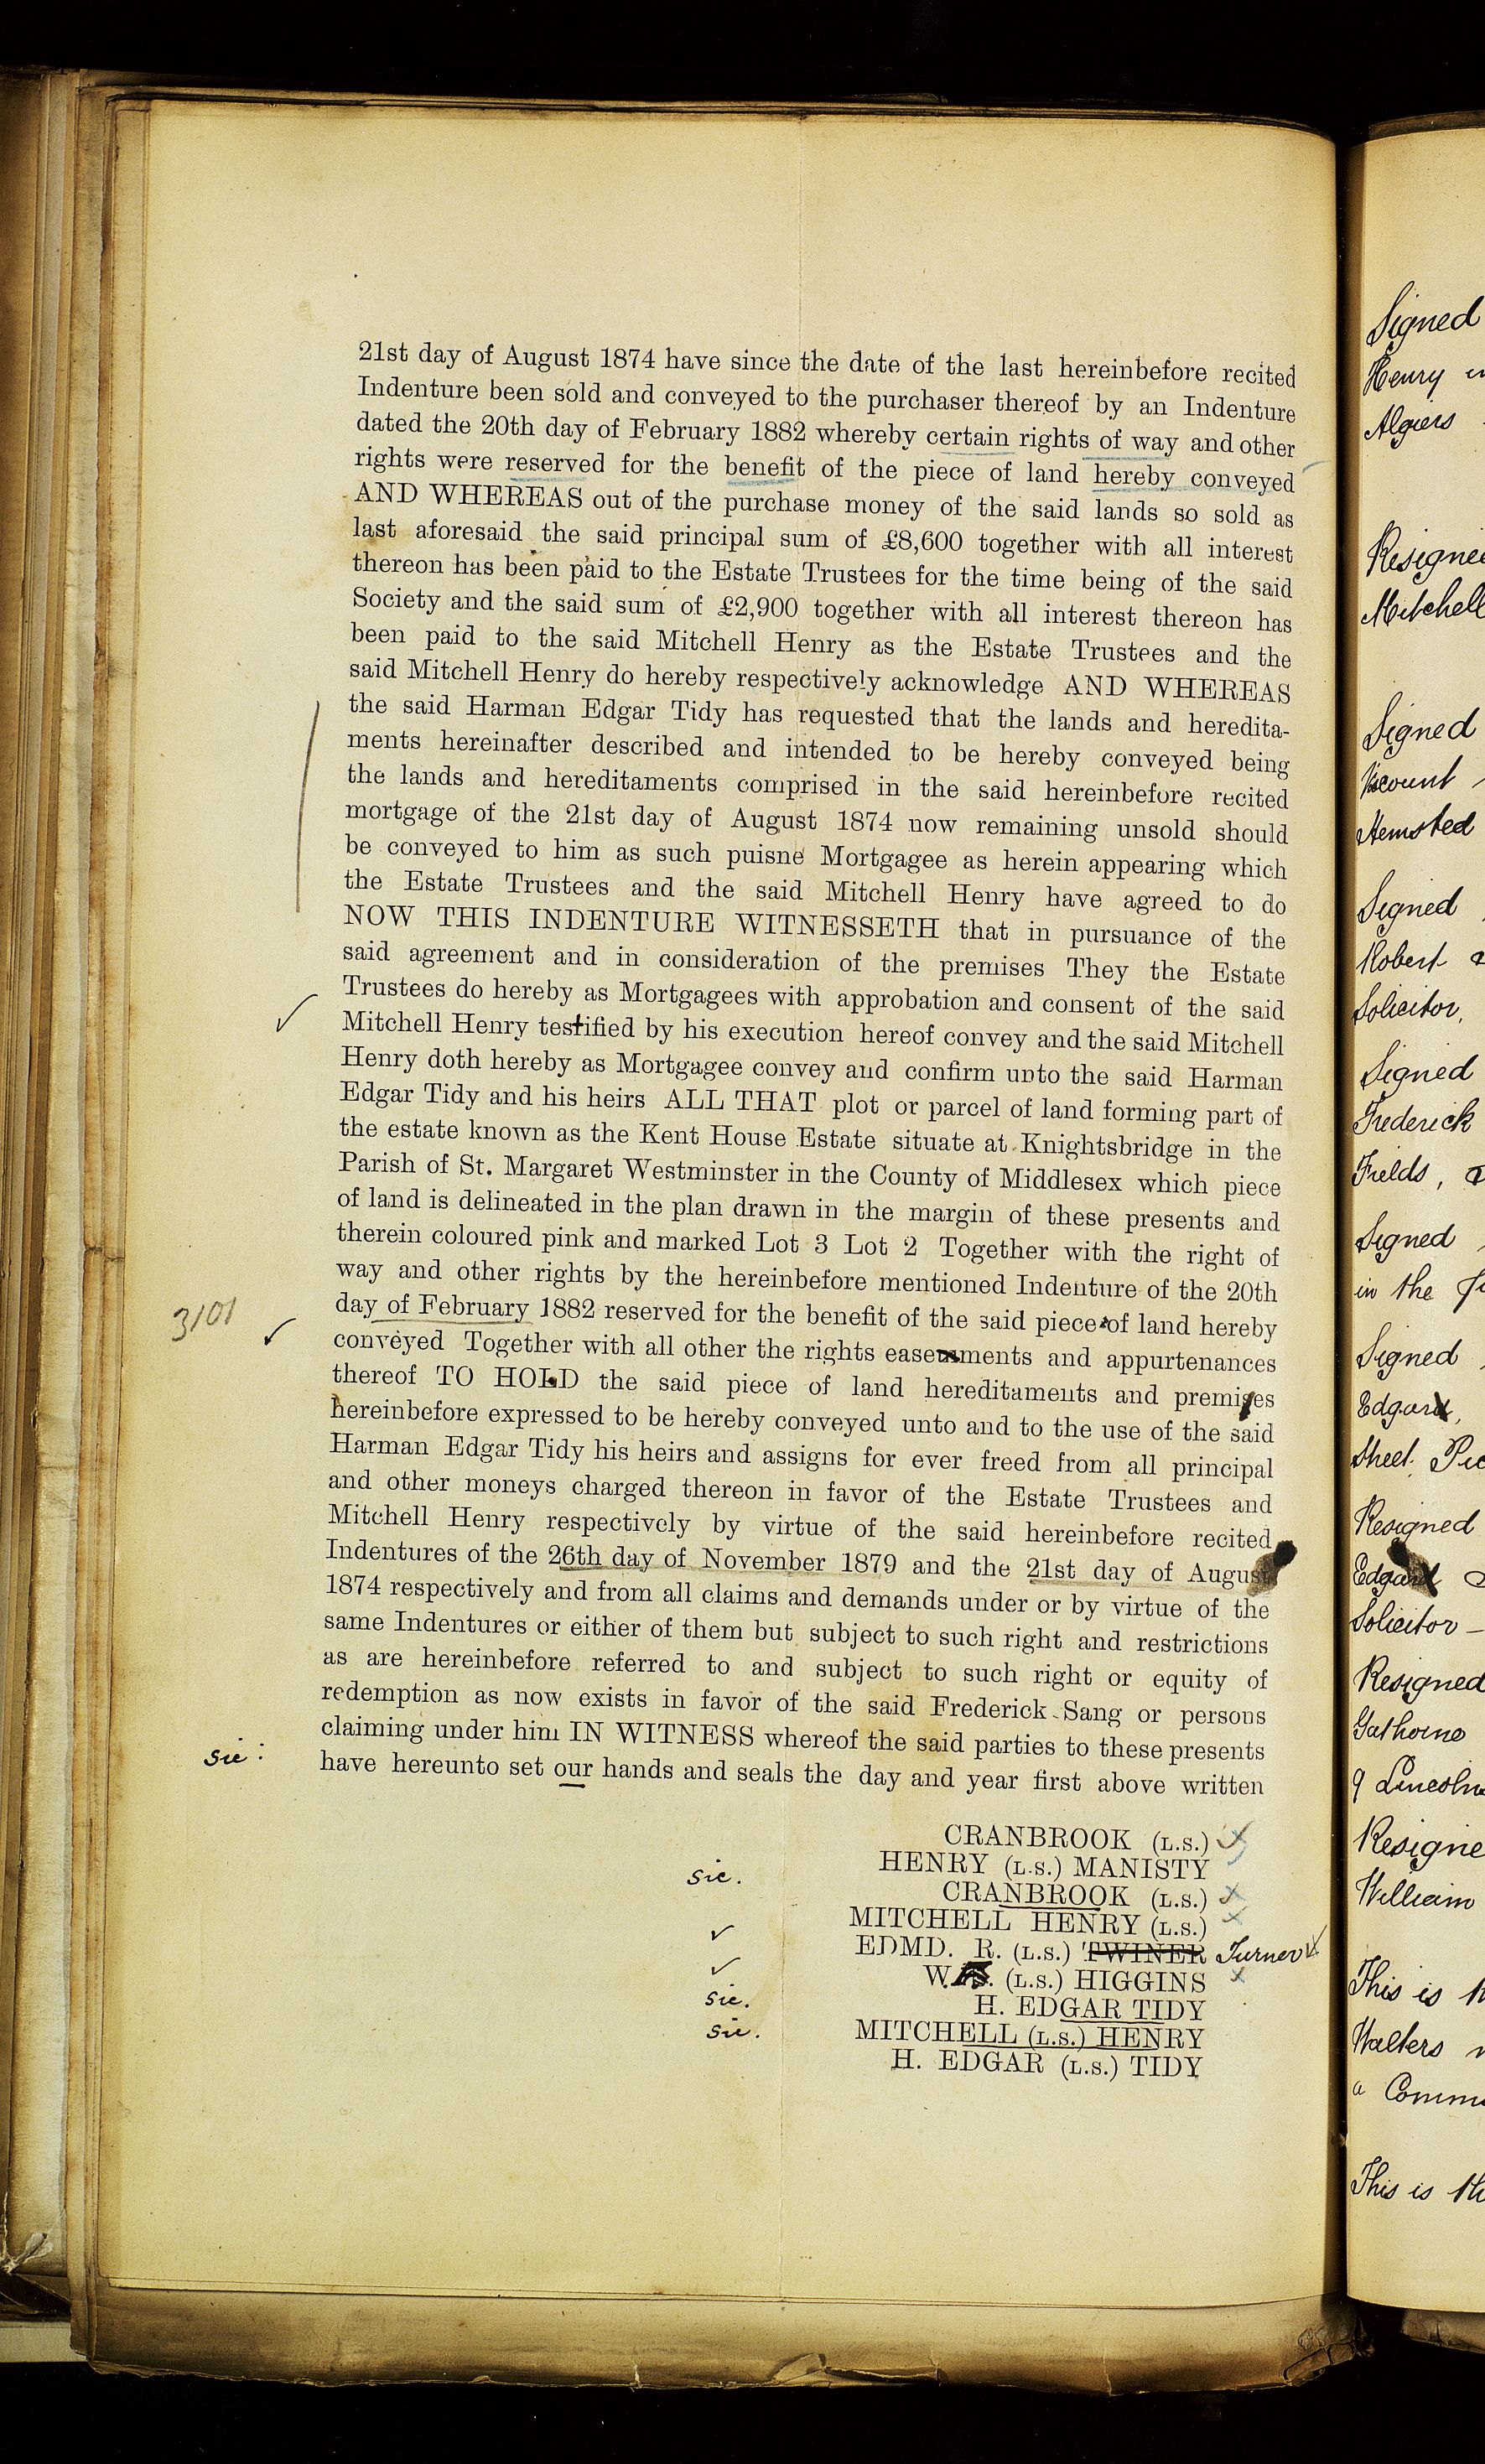 21st day of August 1874 have since the date of the last hereinbefore recited
Indenture been sold and conveyed to the purchaser thereof by an Indenture
dated the 20th day of February 1882 whereby certain rights of way and other
rights were reserved for the benefit of the piece of land hereby conveyed
AND WHEREAS out of the purchase money of the said lands so sold as
last aforesaid the said principal sum of £8,600 together with all interest
thereon has been paid to the Estate Trustees for the time being of the said
Society and the said sum of £2,900 together with all interest thereon has
been paid to the said Mitchell Henry as the Estate Trustees and the
said Mitchell Henry do hereby respectively acknowledge AND WHEREAS
the said Harman Edgar Tidy has requested that the lands and heredita-
ments hereinafter described and intended to be hereby conveyed being
the lands and hereditaments comprised in the said hereinbefore recited
mortgage of the 21st day of August 1874 now remaining unsold should
be conveyed to him as such puisne Mortgagee as herein appearing which
the Estate Trustees and the said Mitchell Henry have agreed to do
NOW THIS INDENTURE WITNESSETH that in pursuance of the
said agreement and in consideration of the premises They the Estate
Trustees do hereby as Mortgagees with approbation and consent of the said
Mitchell Henry testified by his execution hereof convey and the said Mitchell
Henry doth hereby as Mortgagee convey and confirm unto the said Harman
Edgar Tidy and his heirs ALL THAT plot or parcel of land forming part of
the estate known as the Kent House Estate situate at Knightsbridge in the
Parish of St. Margaret Westminster in the County of Middlesex which piece
of land is delineated in the plan drawn in the margin of these presents and
therein coloured pink and marked Lot 3 Lot 2 Together with the right of
way and other rights by the hereinbefore mentioned Indenture of the 20th
3101 day of February 1882 reserved for the benefit of the said piece of land hereby
conveyed Together with all other the rights easements and appurtenances
thereof TO HOLD the said piece of land hereditaments and premises
hereinbefore expressed to be hereby conveyed unto and to the use of the said
Harman Edgar Tidy his heirs and assigns for ever freed from all principal
and other moneys charged thereon in favor of the Estate Trustees and
Mitchell Henry respectively by virtue of the said hereinbefore recited
Indentures of the 26th day of November 1879 and the 21st day of August
1874 respectively and from all claims and demands under or by virtue of the
same Indentures or either of them but subject to such right and restrictions
as are hereinbefore referred to and subject to such right or equity of
redemption as now exists in favor of the said Frederick Sang or persons
claiming under him IN WITNESS whereof the said parties to these presents
sic: have hereunto set our hands and seals the day and year first above written
CRANBROOK (L.S.)
HENRY (L.S.) MANISTY
sic. CRANBROOK (L.S.)
MITCHELL HENRY (L.S.)
EDMD. R. (L.S.) TWINER Turner
W. (L.S.) HIGGINS
sic. H. EDGAR TIDY
sic. MITCHELL (L.S.) HENRY
H. EDGAR (L.S.) TIDY
Signed
Henry
Algiers
Resigned
Mitchell
Signed
Viscount
Hemsted
Signed
Robert
Solicitor,
Signed
Frederick
Fields,
Signed
in the
Signed
Edgar,
Street.
Resigned
Edgar
Solicitor —
Resigned
Gathorne
9 Lincolns
Resigne
William
This is
Walters
a Comm
This is th